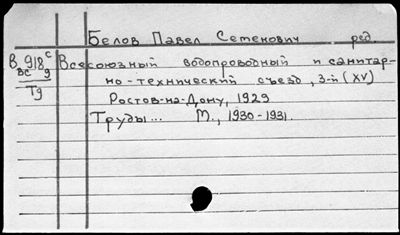 Белов Павел Семенович ред.
В 918 с
вс 9
Т9
Всесоюзный водопроводный и санитар-
но-технический съезд, 3-й (XV)
Ростов-на-Дону, 1929
Труды... М., 1930-1931.